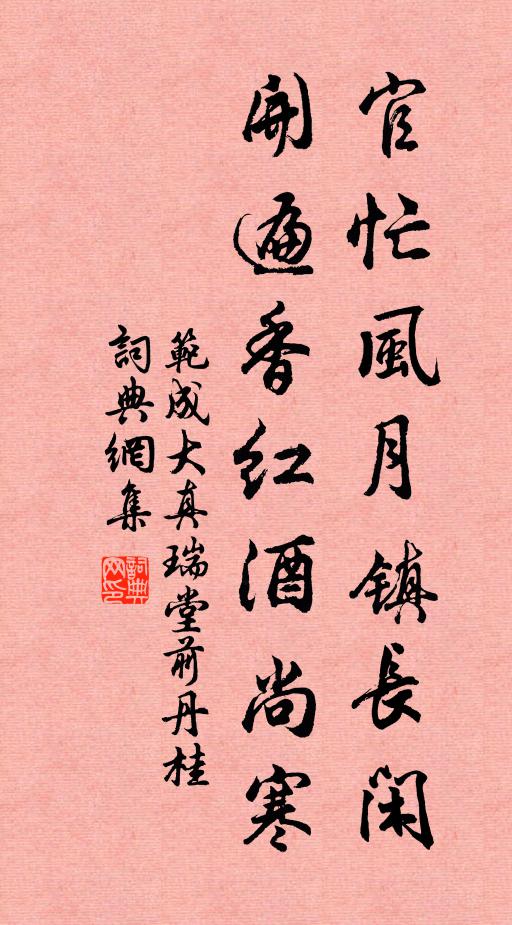 官忙風月镇長閑
開遍香红酒尚寒
範成大真瑞堂前丹桂
詞典網集
詞典网印